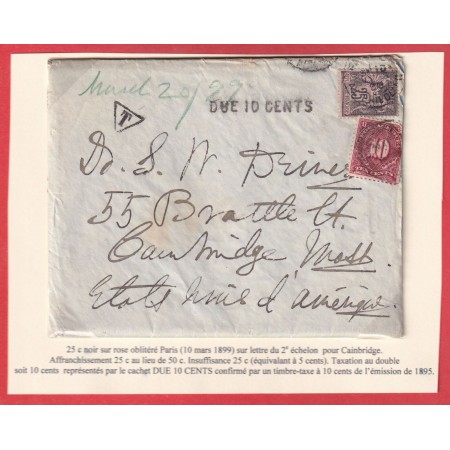 March 20/99
DUE 10 CENTS
T
25
10
Dr. S. W. Driver
55 Brattle St.
Cambridge Mass.
Etats Unis d'amérique.
25 c noir sur rose oblitéré Paris (10 mars 1899) sur lettre du 2e échelon pour Cainbridge.
Affranchissement 25 c au lieu de 50 c. Insuffisance 25 c (équivalant à 5 cents). Taxation au double
soit 10 cents représentés par le cachet DUE 10 CENTS confirmé par un timbre-taxe à 10 cents de l'émission de 1895.